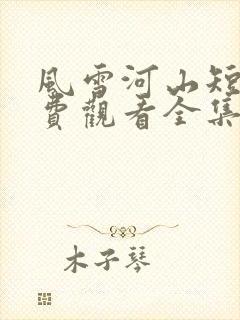 風雪河山短
費觀看全集
木子琴